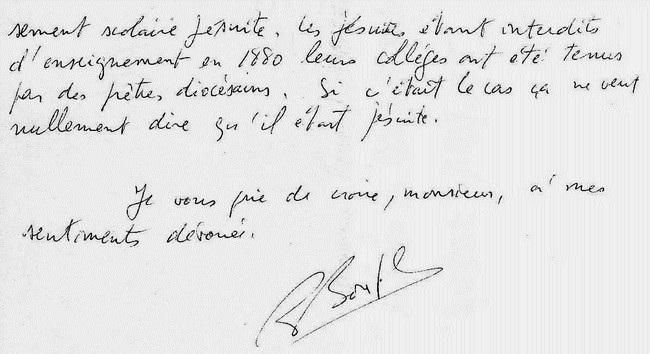 sement scolaire Jésuite. Les jésuites étant interdits
d'enseignement en 1880 leurs collèges ont été tenus
par des prêtres diocésains. Si c'était le cas ça ne veut
nullement dire qu'il était jésuite.
Je vous prie de croire, monsieur, à mes
sentiments dévoués.